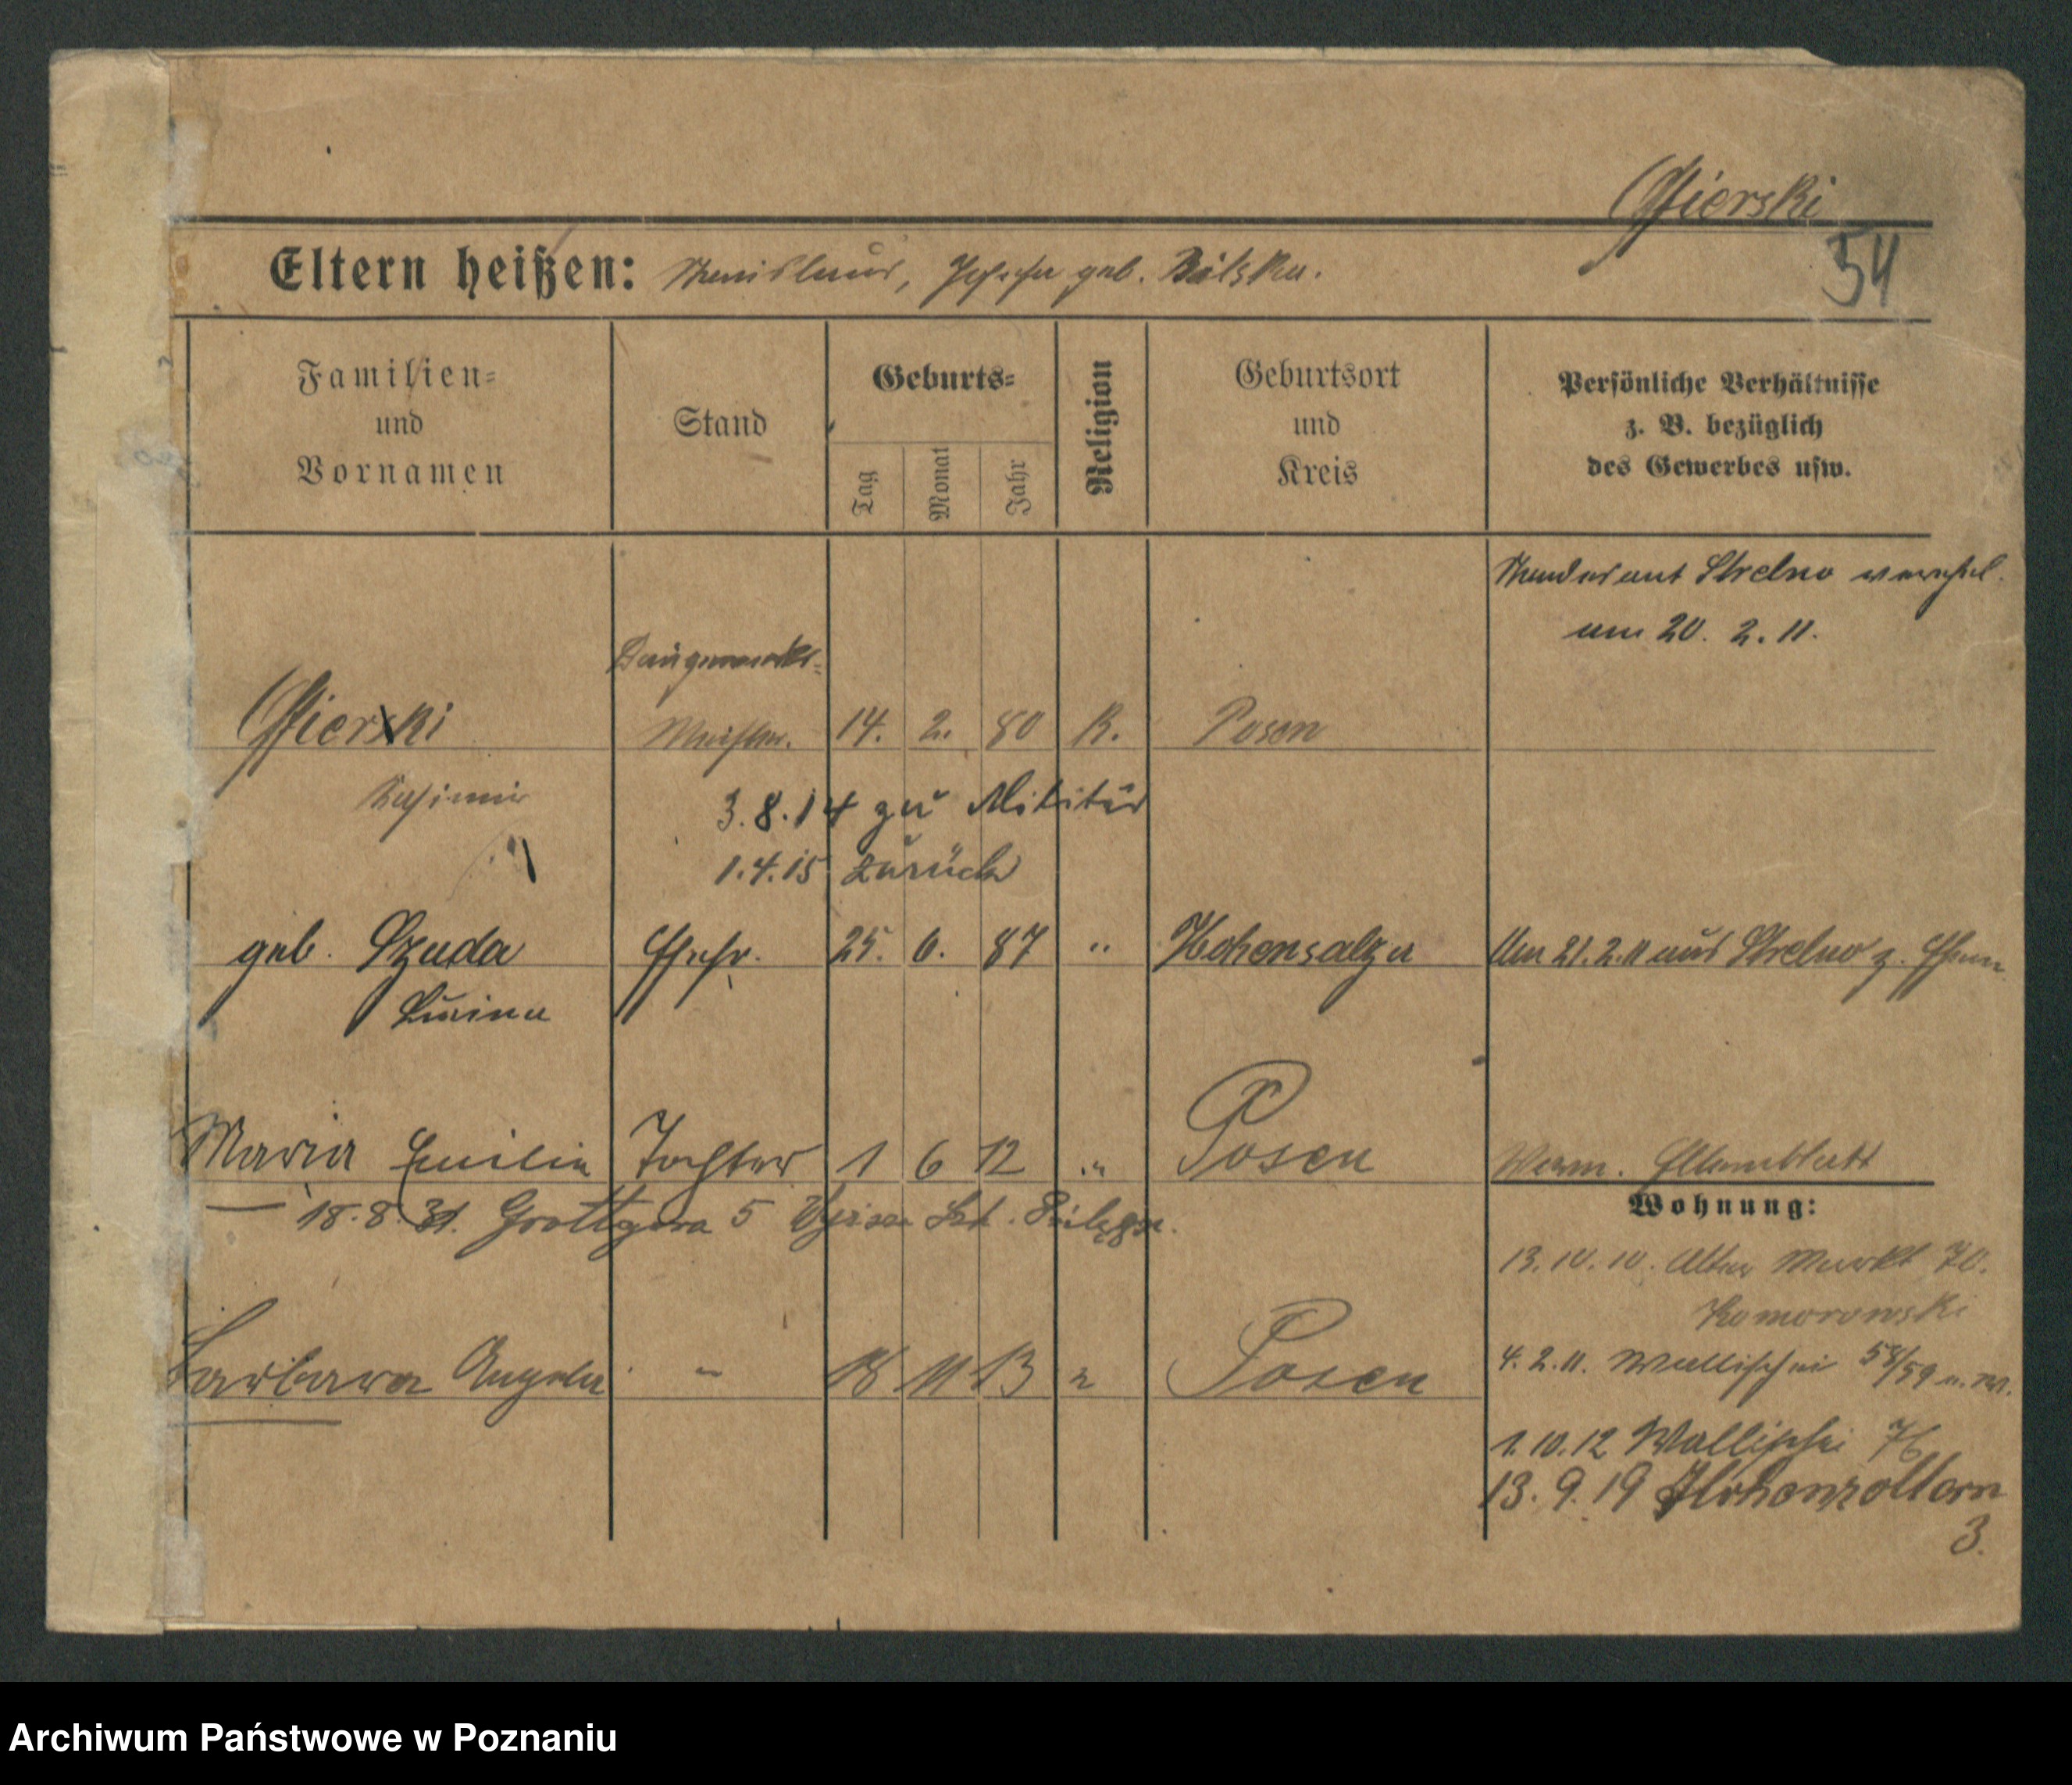 Gierski
54
Eltern heißen: Stanislaus, Josefa geb. Bilska.
Familien- und Vornamen
Stand
Geburts-
Tag
Monat
Jahr
Religion
Geburtsort und Kreis
Persönliche Verhältnisse z. B. bezüglich des Gewerbes usw.
Standesamt Strelno
am 20. 2. 11.
Baugewerks-
Gierski Meister. 14. 2. 80 K. Posen
Kasimir
3.8.14 zu Militär
1.4.15 zurück
geb. Szuda Ehefr. 25. 6. 87 " Hohensalza Am 21.2.11 aus Strelno z. Ehem.
Maria Emilia Tochter 1 6 12 " Posen
Elternblatt
18.8.31. Grottgera 5
Wohnung:
13.10.10. Alter Markt 70.
Komorowski
Barbara Angela " 18 11 13 " Posen
4.2.11. Wallischei 58/59
1.10.12 Wallischei 76
13.9.19 Hohenzollern
3.
Archiwum Państwowe w Poznaniu